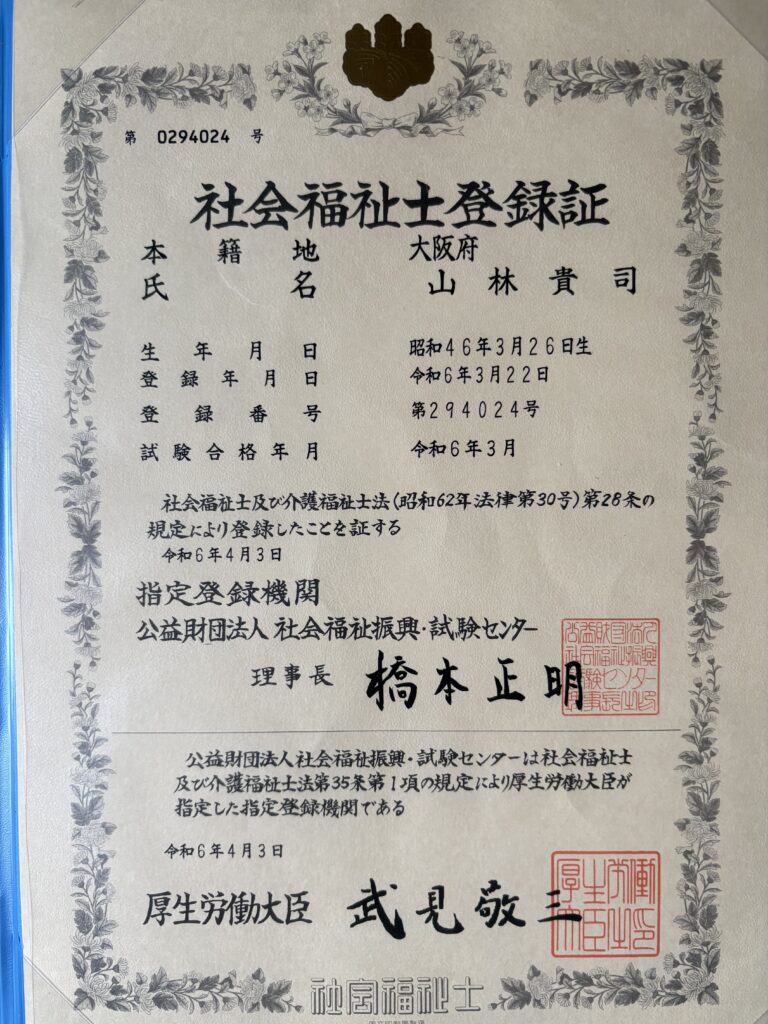 第 0294024 号
社会福祉士登録証
本籍地 大阪府
氏名 山林貴司
生年月日 昭和46年3月26日生
登録年月日 令和6年3月22日
登録番号 第294024号
試験合格年月 令和6年3月
社会福祉士及び介護福祉士法(昭和62年法律第30号)第28条の
規定により登録したことを証する
令和6年4月3日
指定登録機関
公益財団法人 社会福祉振興・試験センター
理事長 橋本正明
公益財団法人社会福祉振興・試験センターは社会福祉士
及び介護福祉士法第35条第1項の規定により厚生労働大臣が
指定した指定登録機関である
令和6年4月3日
厚生労働大臣 武見敬三
厚生労働大臣之印
社会福祉士